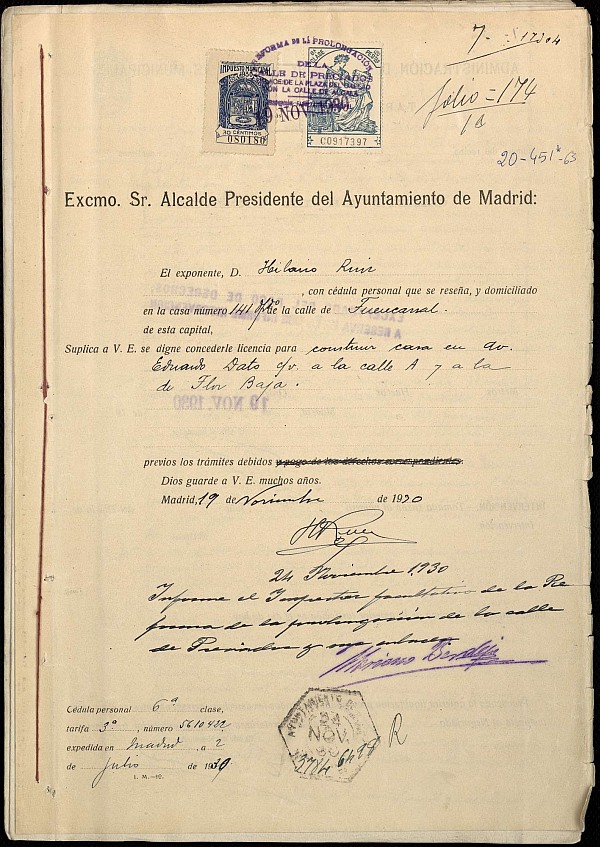 7- 17304
Folio=174
20-451*-63
REFORMA DE LA PROLONGACION
DE LA
CALLE DE PRECIADOS
CON LA CALLE DE ALCALÁ
19 NOV. 1930
IMPUESTO MUNICIPAL
30 CENTIMOS
080180
C0917397
Excmo. Sr. Alcalde Presidente del Ayuntamiento de Madrid:
El exponente, D. Hilario Ruiz
, con cédula personal que se reseña, y domiciliado
en la casa número 141 de la calle de Fuencarral.
de esta capital,
Suplica a V. E. se digne concederle licencia para construir casa en Av.
Eduardo Dato c/v. a la calle A y a la
de Flor Baja.
19 NOV. 1930
previos los trámites debidos y pago de los derechos correspondientes.
Dios guarde a V. E. muchos años.
Madrid, 19 de Noviembre de 1930
HRuiz
24 Noviembre 1,930
Informe el Inspector facultativo de la Re
forma de la prolongación de la calle
de Preciados y sus
Mariano
Cédula personal 6ª clase,
tarifa 3ª, número 5610422
expedida en Madrid, a 2
de Julio de 1930
I. M.-12.
AYUNTAMIENTO DE
24
NOV.
30
R